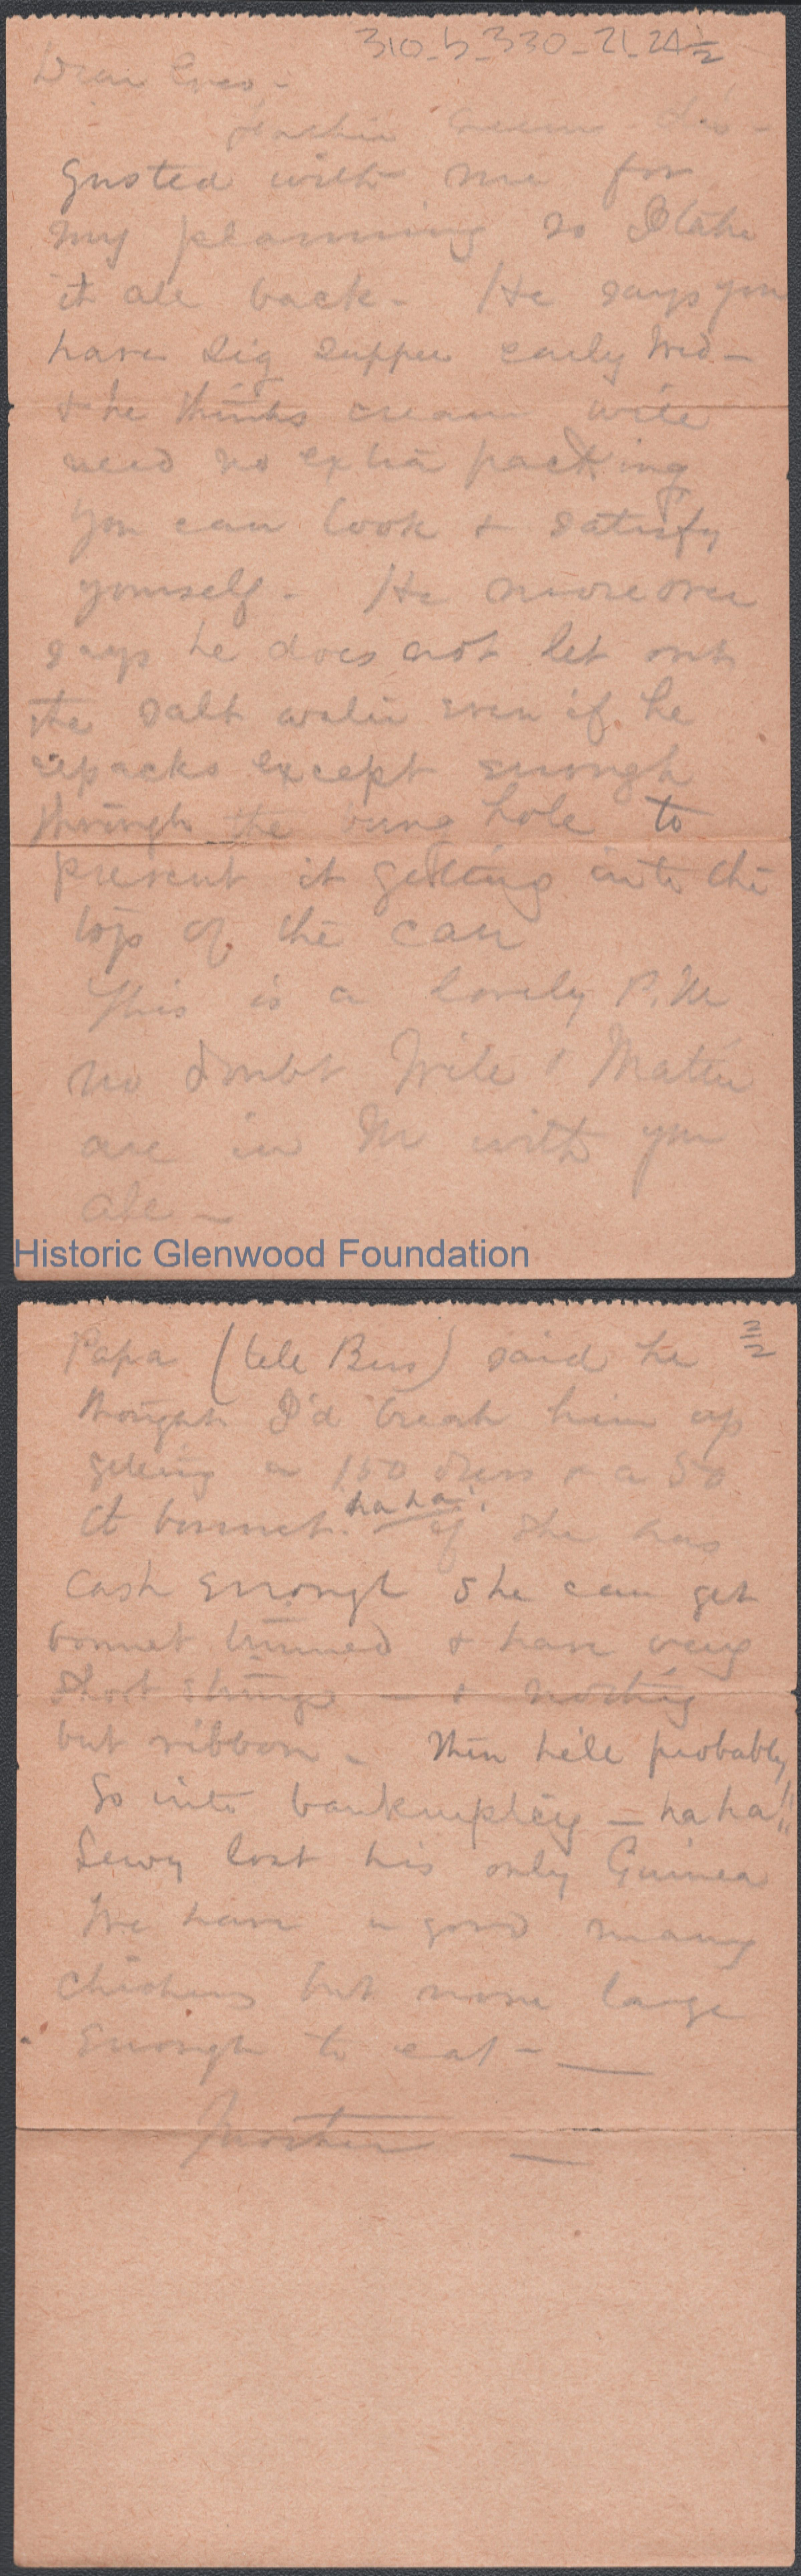 310_5_330_21_2A 1/2
Dear
seems dis-
gusted with me for
my planning so I take
it all back - He says you
have big supper early Wed -
& he thinks cream will
need no extra packing
you can look & satisfy
yourself - He moreover
says he does not let out
the salt water even if he
repacks except enough
through the bung hole to
prevent it getting into the
top of the can
This is a lovely P.M.
no doubt Will & Mattie
are in M with you
all -
Historic Glenwood Foundation
2/2
Papa (tell Bess) said he
thought I'd break him up
getting a 150 dress & a 50
ct bonnet. ha ha! if she has
cash enough she can get
bonnet trimmed & have very
short strings - & nothing
but ribbon - Then he'll probably
go into bankruptcy - ha ha!!
Lewy lost his only Guinea
We have a good many
chickens but none large
enough to eat -
Mother -